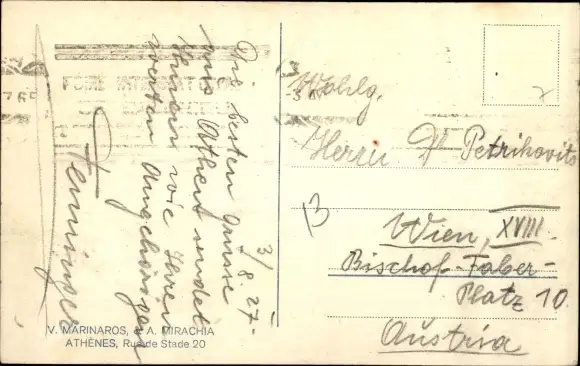 3/8.27.
Die besten Grüsse
aus Athen sendet
Ihnen wie Ihren
werten Angehörigen
Wohlg.
Herrn Dr Petrikovits
13
Wien, XVIII.
Bischof-Faber-
Platz 10
Austria
V. MARINAROS, & A. MIRACHIA
ATHÈNES, Rue de Stade 20